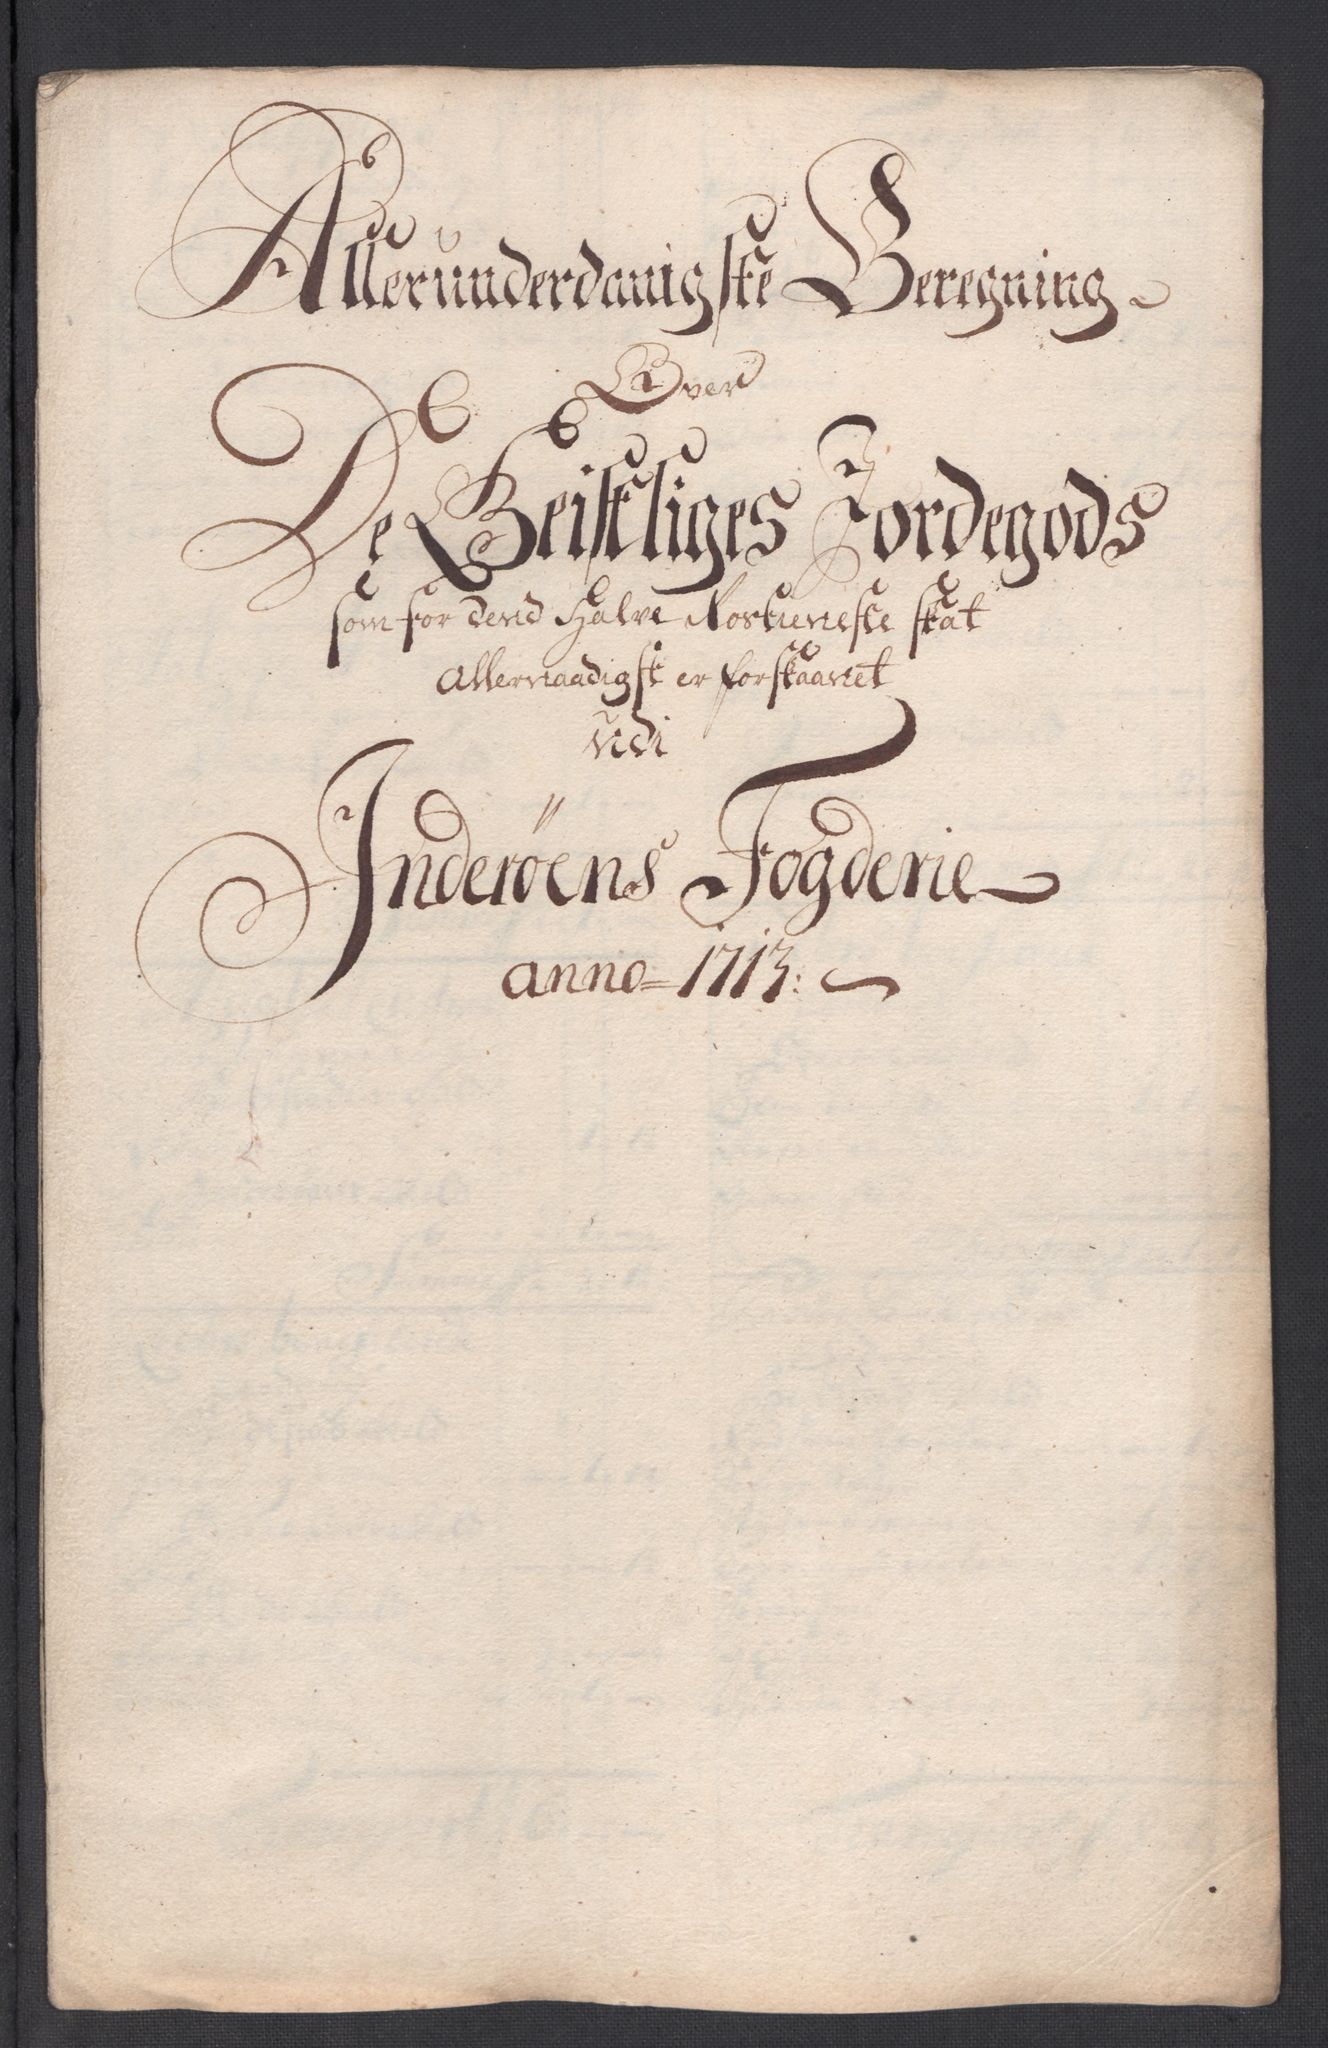 Allerunderdanigste Beregning
Over
De Geistliges Jordegods
som for dend Halve Rostieneste skat
allernaadigst er forskaanet
udi
Inderöens Fogderie
anno 1713: